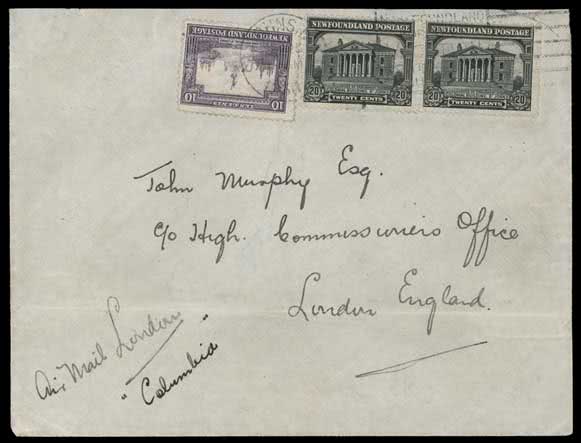 NEWFOUNDLAND POSTAGE
10 TEN CENTS 10
NEWFOUNDLAND POSTAGE
20 TWENTY CENTS 20
NEWFOUNDLAND POSTAGE
20 TWENTY CENTS 20
John Murphy Esq.
c/o High. Commissioners Office
London England.
Air Mail London
"Columbia"